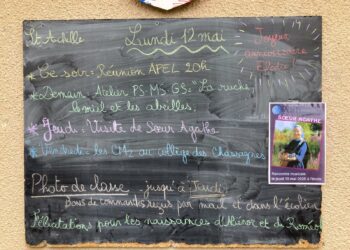 St Achille
Lundi 12 mai
Joyeux
anniversaire
Elodie!
* Ce soir: Réunion APEL 20h
* Demain: Atelier PS-MS-GS: "La ruche,
l'miel et les abeilles,
* Jeudi: Visite de Sœur Agathe
* Vendredi: les CM2 au collège des Chassagnes
Photo de classe jusqu'à Jeudi
Bons de commandes reçus par mail et dans l'écolier
Félicitations pour les naissances d'Aliénor et de Roméo
SŒUR AGATHE
Rencontre musicale
le jeudi 15 mai 2025 à l'école